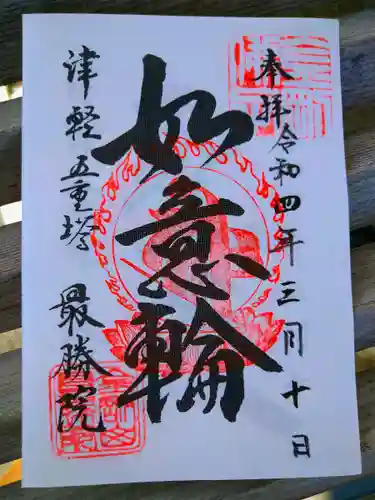 奉拝 令和四年三月十日
如意輪
津軽五重塔 最勝院